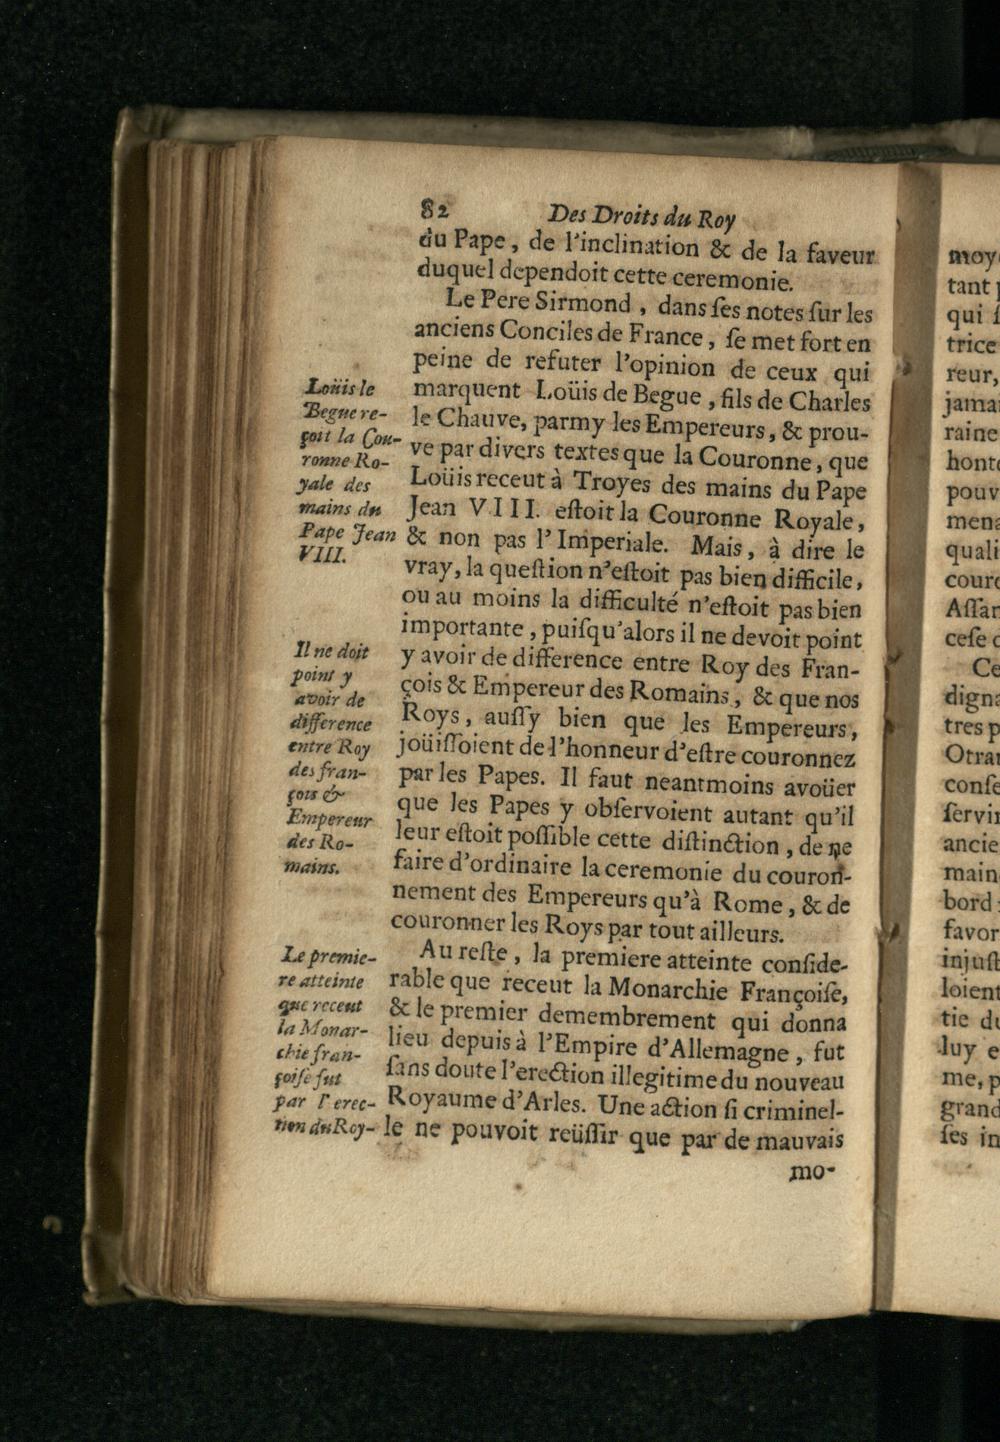 82 Des Droits du Roy
du Pape, de l'inclination & de la faveur
duquel dependoit cette ceremonie.
Le Pere Sirmond, dans ſes notes ſur les
anciens Conciles de France, ſe met fort en
peine de refuter l'opinion de ceux qui
marquent Loüis de Begue, fils de Charles
le Chauve, parmy les Empereurs, & prou-
ve par divers textes que la Couronne, que
Loüis receut à Troyes des mains du Pape
Jean VIII. eſtoit la Couronne Royale,
& non pas l'Imperiale. Mais, à dire le
vray, la queſtion n'eſtoit pas bien difficile,
ou au moins la difficulté n'eſtoit pas bien
importante, puiſqu'alors il ne devoit point
y avoir de difference entre Roy des Fran-
çois & Empereur des Romains, & que nos
Roys, auſſy bien que les Empereurs,
joüiſſoient de l'honneur d'eſtre couronnez
par les Papes. Il faut neantmoins avoüer
que les Papes y obſervoient autant qu'il
leur eſtoit poſſible cette diſtinction, de ne
faire d'ordinaire la ceremonie du couron-
nement des Empereurs qu'à Rome, & de
couronner les Roys par tout ailleurs.
Au reſte, la premiere atteinte conſide-
rable que receut la Monarchie Françoiſe,
& le premier demembrement qui donna
lieu depuis à l'Empire d'Allemagne, fut
ſans doute l'erection illegitime du nouveau
Royaume d'Arles. Une action ſi criminel-
le ne pouvoit reüſſir que par de mauvais
mo-
Loüis le
Begue re-
çoit la Cou-
ronne Ro-
yale des
mains du
Pape Jean
VIII.
Il ne doit
point y
avoir de
difference
entre Roy
des fran-
çois &
Empereur
des Ro-
mains.
Le premie-
re atteinte
que receut
la Monar-
chie fran-
çoiſe fut
par l'erec-
tion du Roy-
moy
tant
qui
trice
reur,
jamai
raine
hont
pouv
mena
quali
courd
Aſſan
ceſe
Ce
digna
tres p
Otran
conſe
ſervir
ancie
main
bord
favor
injuſt
loient
tie du
luy e
me, p
grand
ſes in